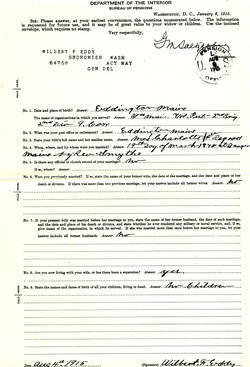 DEPARTMENT OF THE INTERIOR
BUREAU OF PENSIONS
WASHINGTON, D. C., January 2, 1915.
SIR: Please answer, at your earliest convenience, the questions enumerated below. The information
is requested for future use, and it may be of great value to your widow or children. Use the inclosed
envelope, which requires no stamp.
Very respectfully,
WILBERT F EDDY
SNOHOMISH WASH
64759 ACT MAY
GEN DEL
No. 1. Date and place of birth? Answer. Eddington Maine
The name of organizations in which you served? Answer.
No. 2. What was your post office at enlistment? Answer. Eddington Maine
No. 3. State your wife's full name and her maiden name. Answer. Mrs Charlotte
No. 4. When, where, and by whom were you married? Answer. 19th Day of March 1870 at Bangor
Maine by Rev Smythe
Answer. No
No. 6. Were you previously married? If so, state the name of your former wife, the date and place of marriage, and the date and place of her
death or divorce. If there was more than one previous marriage, let your answer include all former wives. Answer. No
No. 7. If your present wife was married before her marriage to you, state the name of her former husband, the date of such marriage,
and the date and place of his death or divorce, and state whether he ever rendered any military or naval service, and, if so,
give name of the organization in which he served. If she was married more than once before her marriage to you, let your
answer include all former husbands. Answer. No
No. 8. Are you now living with your wife, or has there been a separation? Answer. yes.
No. 9. State the names and dates of birth of all your children, living or dead. Answer. No Children
Date Aug 4th 1915 (Signature) Wilbert F. Eddy